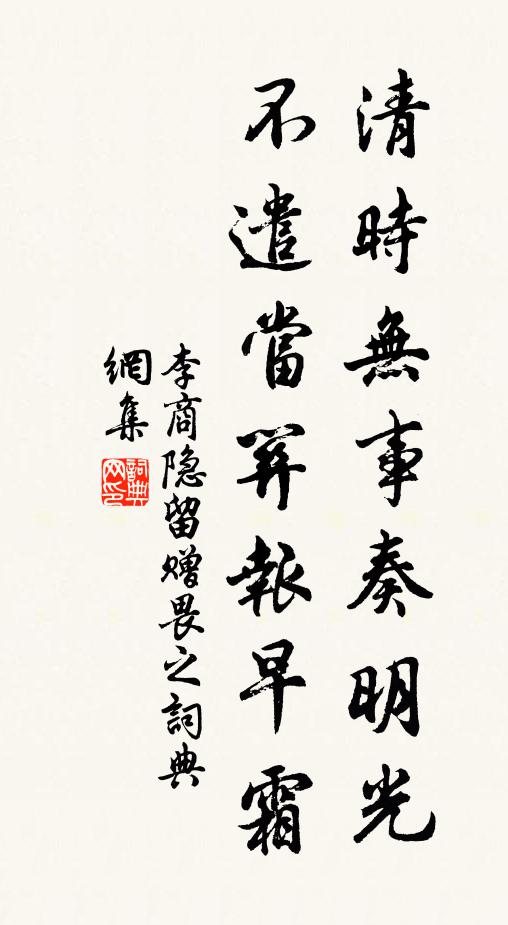 清時無事奏明光
不遣當關報早霜
李商隐留赠畏之詞典
網集
詞典
网印